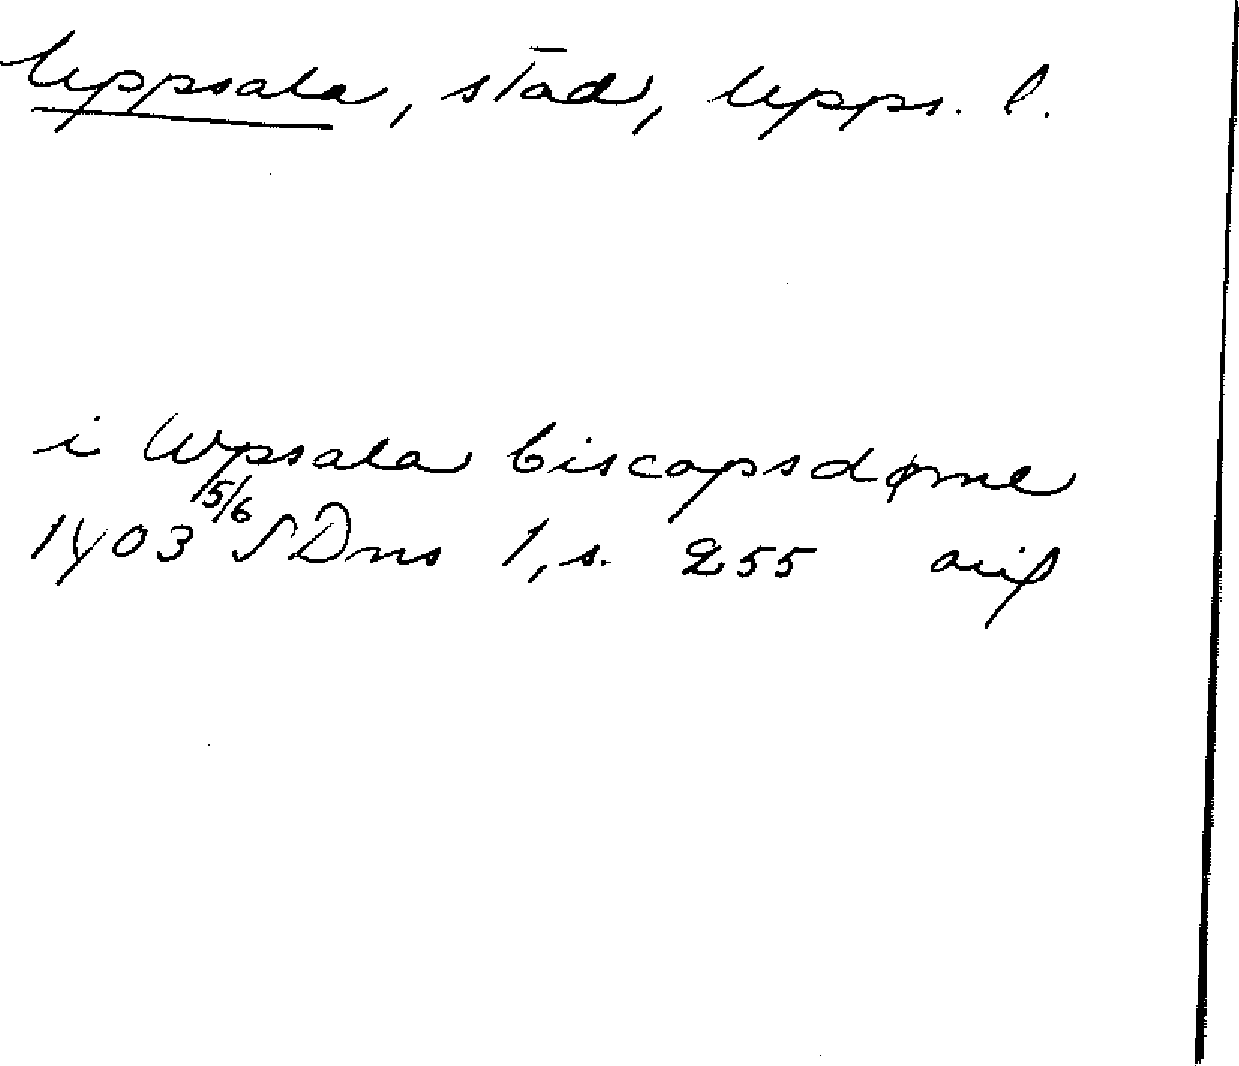 Uppsala, stad, Upps. l.
i Wpsala biscopsdøme
1403 15/6 SDns 1, s. 255 avs